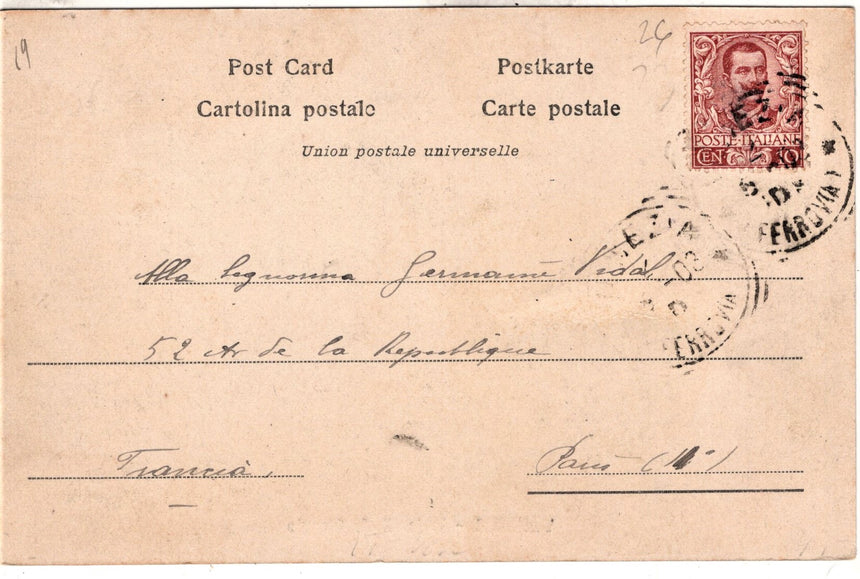 19
26
Post Card
Postkarte
Cartolina postale
Carte postale
Union postale universelle
POSTE ITALIANE
CEN 10
FERROVIA
EZIA
-03
FERROVIA
Alla Signorina Germaine Vidal
52 Av de la Republique
Francia,
Paris